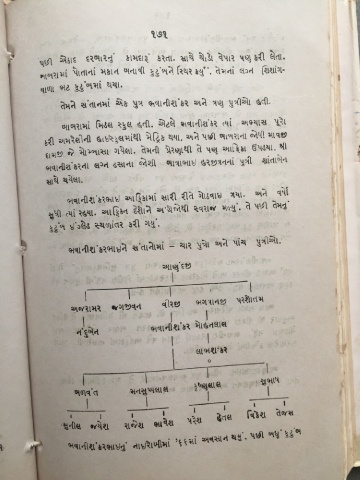 ૧૭૧
પછી એકાદ દરબારનું કામદારૂં કરતા. સાથે થોડો વેપાર પણ કરી લેતા.
ભાખરામાં પોતાનાં મકાન બનાવી કુટુંબને સ્થિર કર્યું. તેમનાં લગ્ન
વાળા ભટ કુટુંબમાં થયા.
તેમને સંતાનમાં એક પુત્ર ભવાનીશંકર અને ત્રણ પુત્રીઓ હતી.
ભાખરામાં મિડલ સ્કુલ હતી. એટલે ભવાનીશંકર ત્યાં અભ્યાસ પૂરો
કરી અમરેલીની હાઇસ્કૂલમાંથી મેટ્રિક થયા. અને પછી ભાખરાના જોષી માવજી
દામજી જે મોમ્બાસા ગયેલા. તેમની પ્રેરણાથી તે પણ આફ્રિકા ઉપડયા. શ્રી
ભવાનીશંકરના લગ્ન હસાના જોશી ભાવાભાઇ હરજીવનનાં પુત્રી શાંતાબેન
સાથે થયેલા.
ભવાનીશંકરભાઇ આફ્રિકામાં સારી રીતે ગોઠવાઇ ગયા. અને વર્ષો
સુધી ત્યાં રહયા. આફ્રિકન દેશોને અંગ્રેજોથી સ્વરાજ મળ્યું. તે પછી તેમનું
કુટુંબ ઇંગ્લેંડ સ્થળાંતર કરી ગયું.
ભવાનીશંકરભાઇને સંતાનોમાં - ચાર પુત્રો અને પાંચ પુત્રીઓ.
આણંદજી
અજરામર જગજીવન વીરજી ભગવાનજી પરશોતામ
નંદુબેન ભવાનીશંકર મોહનલાલ
લાભશંકર
બળવંત મનસુખલાલ કૃષ્ણલાલ સુભાષ
સુનીલ જયેશ રાજેશ ભાવેશ પરેશ હેતલ વિકેશ તેજસ
ભવાનીશંકરભાઇનું નાઇરોબીમાં 'દ૬માં અવસાન થયું. પછી બધું કુટુંબ